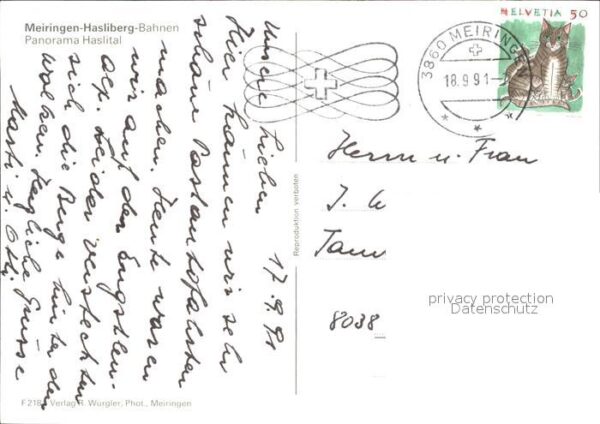 Meiringen-Hasliberg-Bahnen
Panorama Haslital
17.9.91
Unsere Lieben
Hier können wir sehr
schöne Postautofahrten
machen. Heute waren
wir auf der Engstlen-
alp. Leider verstecken
sich die Berge hinter den
Wolken. Herzliche Grüsse
u.
F 218 Verlag R. Würgler, Phot., Meiringen
Reproduktion verboten
HELVETIA 50
3860 MEIRINGEN
18.9.91
Herrn u. Frau
J.
8038
privacy protection
Datenschutz